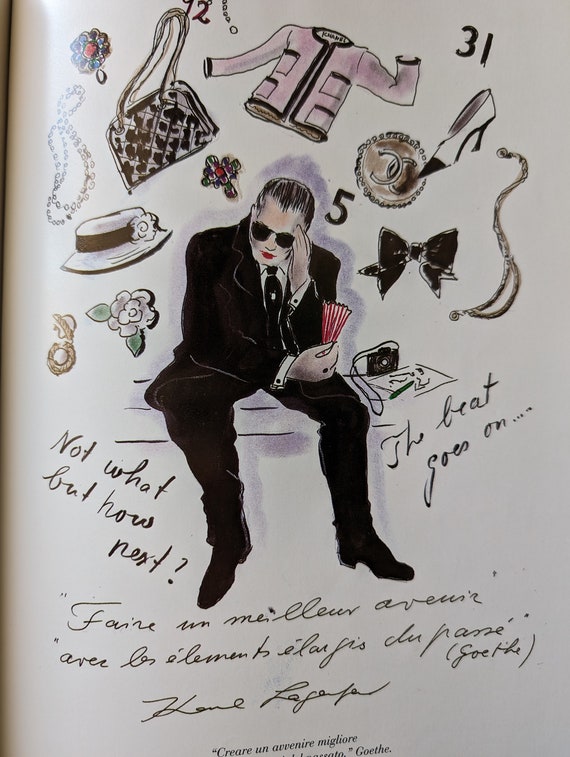 92
CHANEL
31
5
The beat
goes on....
Not what
but how
next?
"Faire un meilleur avenir"
"avec les élements élargis du passé"
(Goethe)
Karl Lagerfeld
"Creare un avvenire migliore
del passato." Goethe.